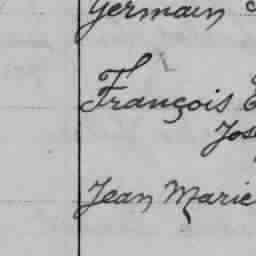 Germain
François
Jos
Jean Marie